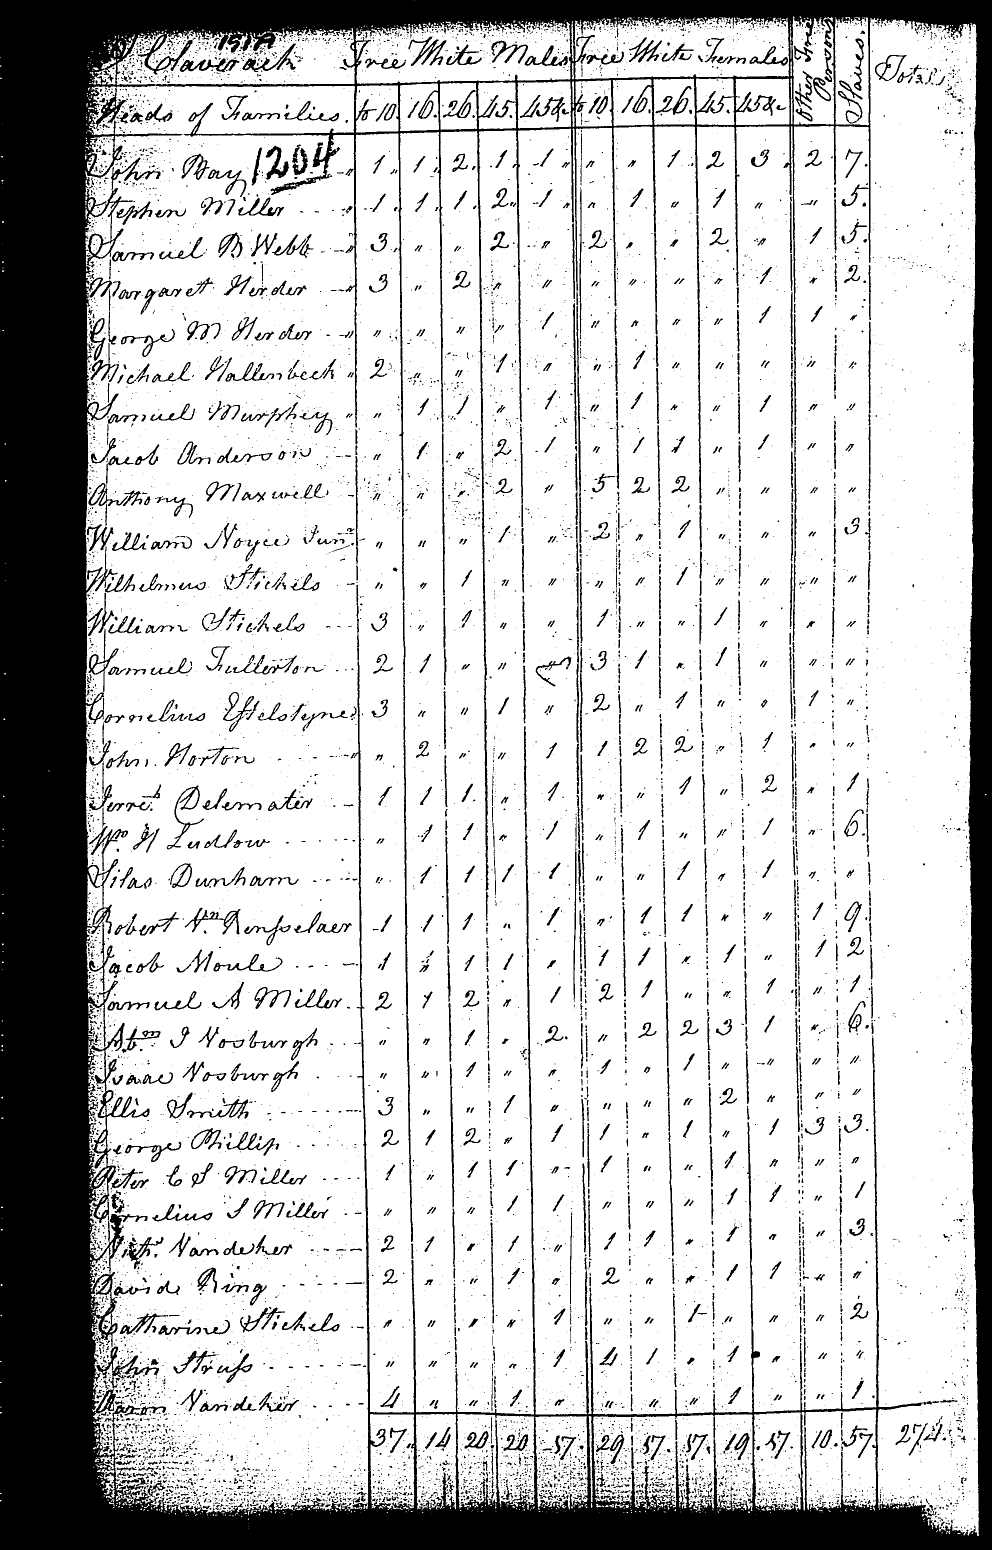 Claverack Free White Males Free White Females Other Free Persons Slaves. Total
Heads of Families. to 10. 16. 26. 45. 45&c to 10. 16. 26. 45. 45&c
John Bay 1204 " 1. 1. 2. 1. 1 " " " 1 2 3. 2 7.
Stephen Miller " 1. 1. 1. 2. 1. " 1 " 1 " " 5.
Samuel B Webb " 3. " " 2 " 2 " " 2 " 1 5.
Margaret Herder " 3 " 2 " " " " " " 1 " 2.
George M Herder " " " " " 1 " " " " 1 1 "
Michael Hallenbeck " 2 " " 1 " " 1 " " " " "
Samuel Murphey " " 1 1 " 1 " 1 " " 1 " "
Jacob Anderson " 1 " 2 1 " 1 1 " 1 " "
Anthony Maxwell " " " 2 " 5 2 2 " " " "
William Noyce Junr " " " 1 " 2 " 1 " " " 3.
Wilhelmus Stickels " " 1 " " " " 1 " " " "
William Stickels 3 " 1 " " 1 " " 1 " " "
Samuel Fullerton 2 1 " " 3 1 " 1 " " "
Cornelius Esselstyne 3 " " 1 " 2 " 1 " " 1 "
John Horton " " 2 " " 1 1 2 2 " 1 " "
Delemater 1 1 1. " 1. " " 1 " 2 " 1
Wm H Ludlow " 1 1 " 1 " 1 " " 1 " 6.
Silas Dunham " 1 1 1 1 " " 1 " 1 " "
Robert Vn Rensselaer 1 1 1 " 1 " 1 1 " " 1 9.
Jacob Moule 1 " 1 1 " 1 1 " 1 " 1 2
Samuel A Miller 2 1 2 " 1 2 1 " " 1. " 1
Abm I Vosburgh " " 1 " 2. " 2 2 3 1 " 6.
Isaac Vosburgh " " 1 " " 1 " 1 " " " "
Ellis Smith 3 " " 1 " " " " 2 " " "
George Phillip 2 1 2 " 1 1 " 1 " 1 3 3.
Peter C S Miller 1 " 1 1 " 1 " " 1 " " "
Cornelius S Miller " " " 1 1 " " " 1 1 " 1
Vandeker 2 1 " 1 " 1 1 " 1 " " 3.
David Ring 2 " " 1 " 2 " " 1 1 " "
Catharine Stickels " " " " 1 " " 1 " " " 2
John Struss " " " " 1 4 1 " 1 " " "
Aaron Vandeker 4 " " 1 " " " " 1 " " 1.
37. 14 20. 20 17. 29 17. 17. 19. 17. 10. 57. 274.